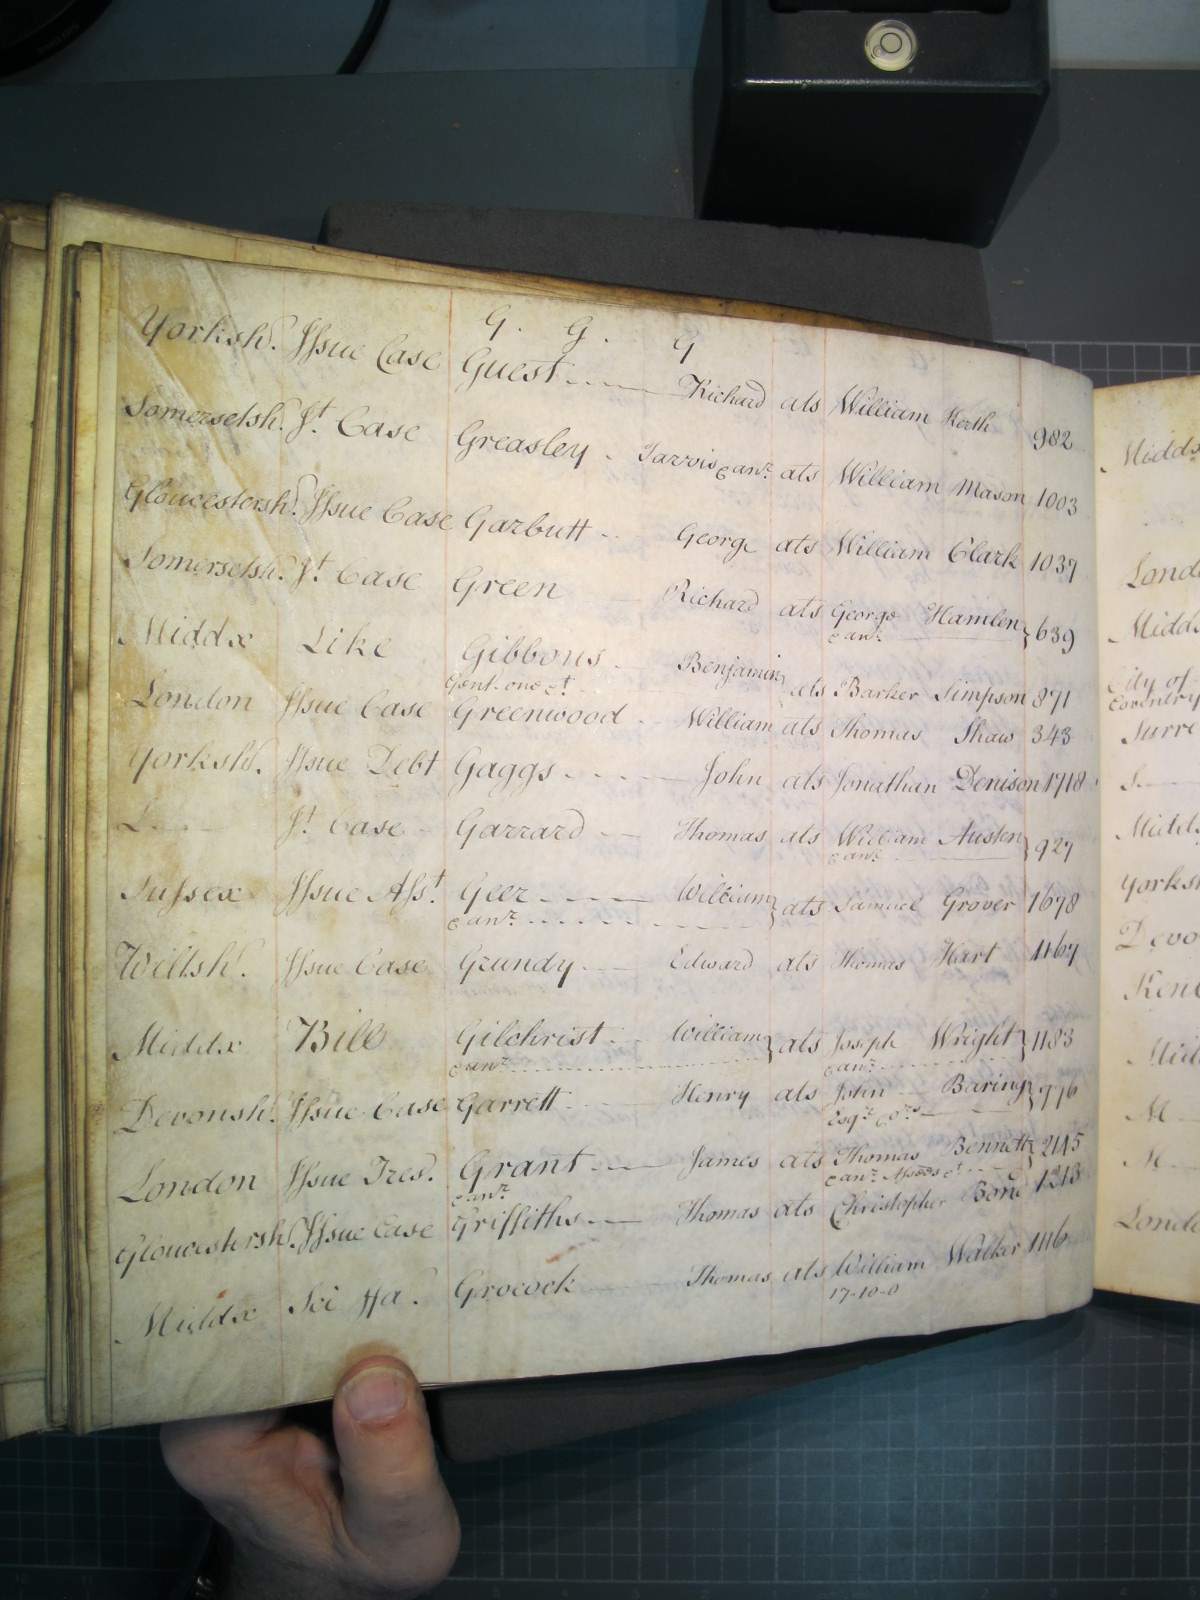 G. G. G
Yorksh.r Issue Case Guest Richard ats William 982
Somersetsh.r J.t Case Greasley Jarvis & anr. ats William Mason 1003
Gloucestersh.r Issue Case Garbutt George ats William Clark 1037
Somersetsh.r J.t Case Green Richard ats George Hamlen } 639
& anr.
Middx Like Gibbons Benjamin } ats Barker Simpson 871
Gent. one &t
London Issue Case Greenwood William ats Thomas Shaw 343
Yorksh.r Issue Debt Gaggs John ats Jonathan Denison 1718
L J.t Case Garrard Thomas ats William Austen } 927
& anr.
Sussex Issue Ass.t Geer William } ats Samuel Grover 1678
& anr.
Wiltsh.r Issue Case Grundy Edward ats Thomas Hart 1167
Middx Bill Gilchrist William } ats Joseph Wright } 1183
& anr. & anr.
Devonsh.r Issue Case Garrett Henry ats John Baring } 776
Esqr. & ors
London Issue Tres.s Grant James ats Thomas Bennett } 2145
& anr. & anr. Assees &t
Gloucestersh.r Issue Case Griffiths Thomas ats Christopher Bond 1213
Middx Sci Fa. Grocock Thomas ats William Walker 1116
17-10-0
Midds
Lond
Midds
City of
Coventry
Surre
S
Midds
Yorksh
Devo
Kent
Mid
M
M
Londo